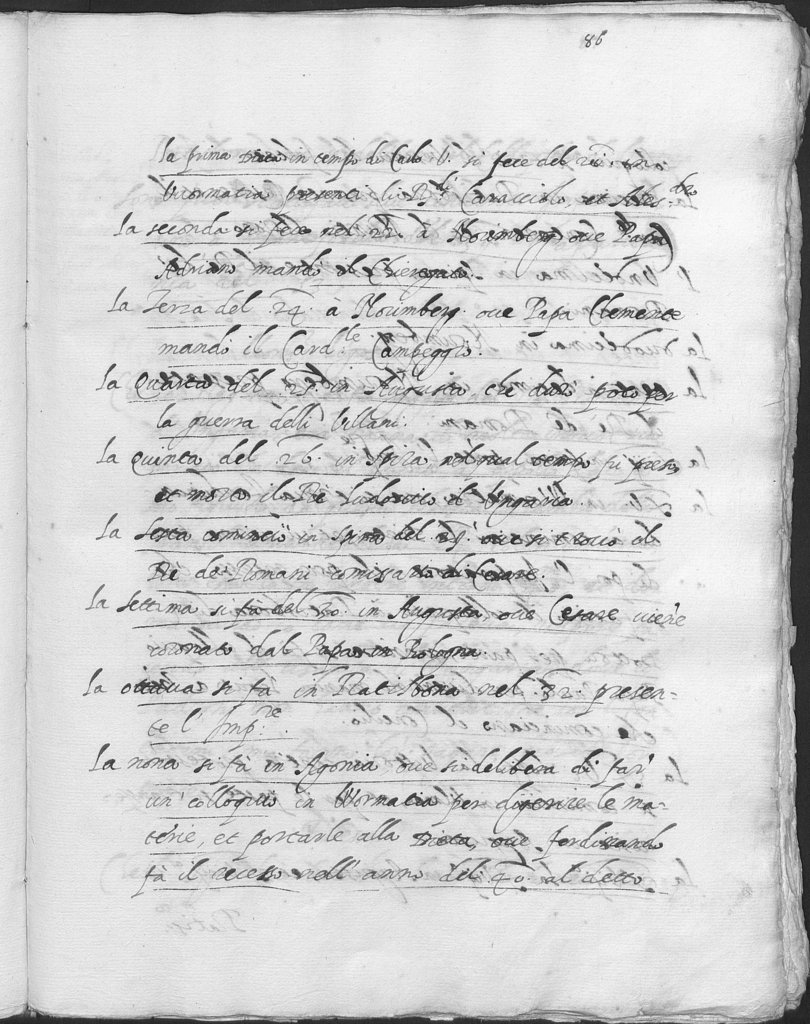 86
la prima Dieta in tempo di Carlo V. si fece del 21. in
Vuormatia presenti gli R.di Caracciolo, et Ales.dro
la seconda si fece nel 22. à Nourmberg oue Papa
Adriano mandò il Chieregato.
la Terza del 24. à Nourmberg. oue Papa Clemente
mandò il Card.le Campeggio.
la quarta del 25. in Augusta che durò poco per
la guerra delli Villani.
la quinta del 26. in Spira, nel qual tempo fu preso,
et morto il Rè Ludouico d'Ungaria.
la sesta cominciò in Spira del 29. oue si trouò il
Rè de Romani comissario di Cesare.
la settima si fà del 30. in Augusta, oue Cesare viene
coronato dal Papa in Bologna.
la ottaua si fà in Ratisbona nel .32. presen-
te l' Imp.re
la nona si fà in Agonia, oue si delibera di far'
un' colloquio in Wormatia per digerire le ma-
terie, et portarle alla Dieta, oue ferdinando
fà il recesso nell' anno del .40. al detto
Ratis.